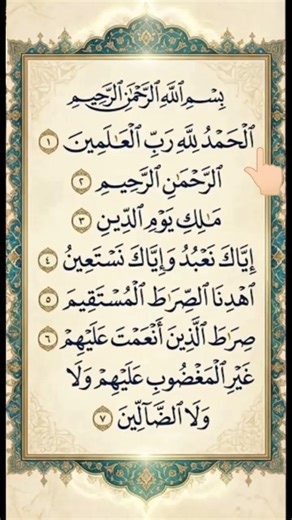 بِسْمِ ٱللَّهِ ٱلرَّحْمَٰنِ ٱلرَّحِيمِ
ٱلْحَمْدُ لِلَّهِ رَبِّ ٱلْعَـٰلَمِينَ ١
ٱلرَّحْمَٰنِ ٱلرَّحِيمِ ٢
مَـٰلِكِ يَوْمِ ٱلدِّينِ ٣
إِيَّاكَ نَعْبُدُ وَإِيَّاكَ نَسْتَعِينُ ٤
ٱهْدِنَا ٱلصِّرَٰطَ ٱلْمُسْتَقِيمَ ٥
صِرَٰطَ ٱلَّذِينَ أَنْعَمْتَ عَلَيْهِمْ ٦
غَيْرِ ٱلْمَغْضُوبِ عَلَيْهِمْ وَلَا
وَلَا ٱلضَّآلِّينَ ٧